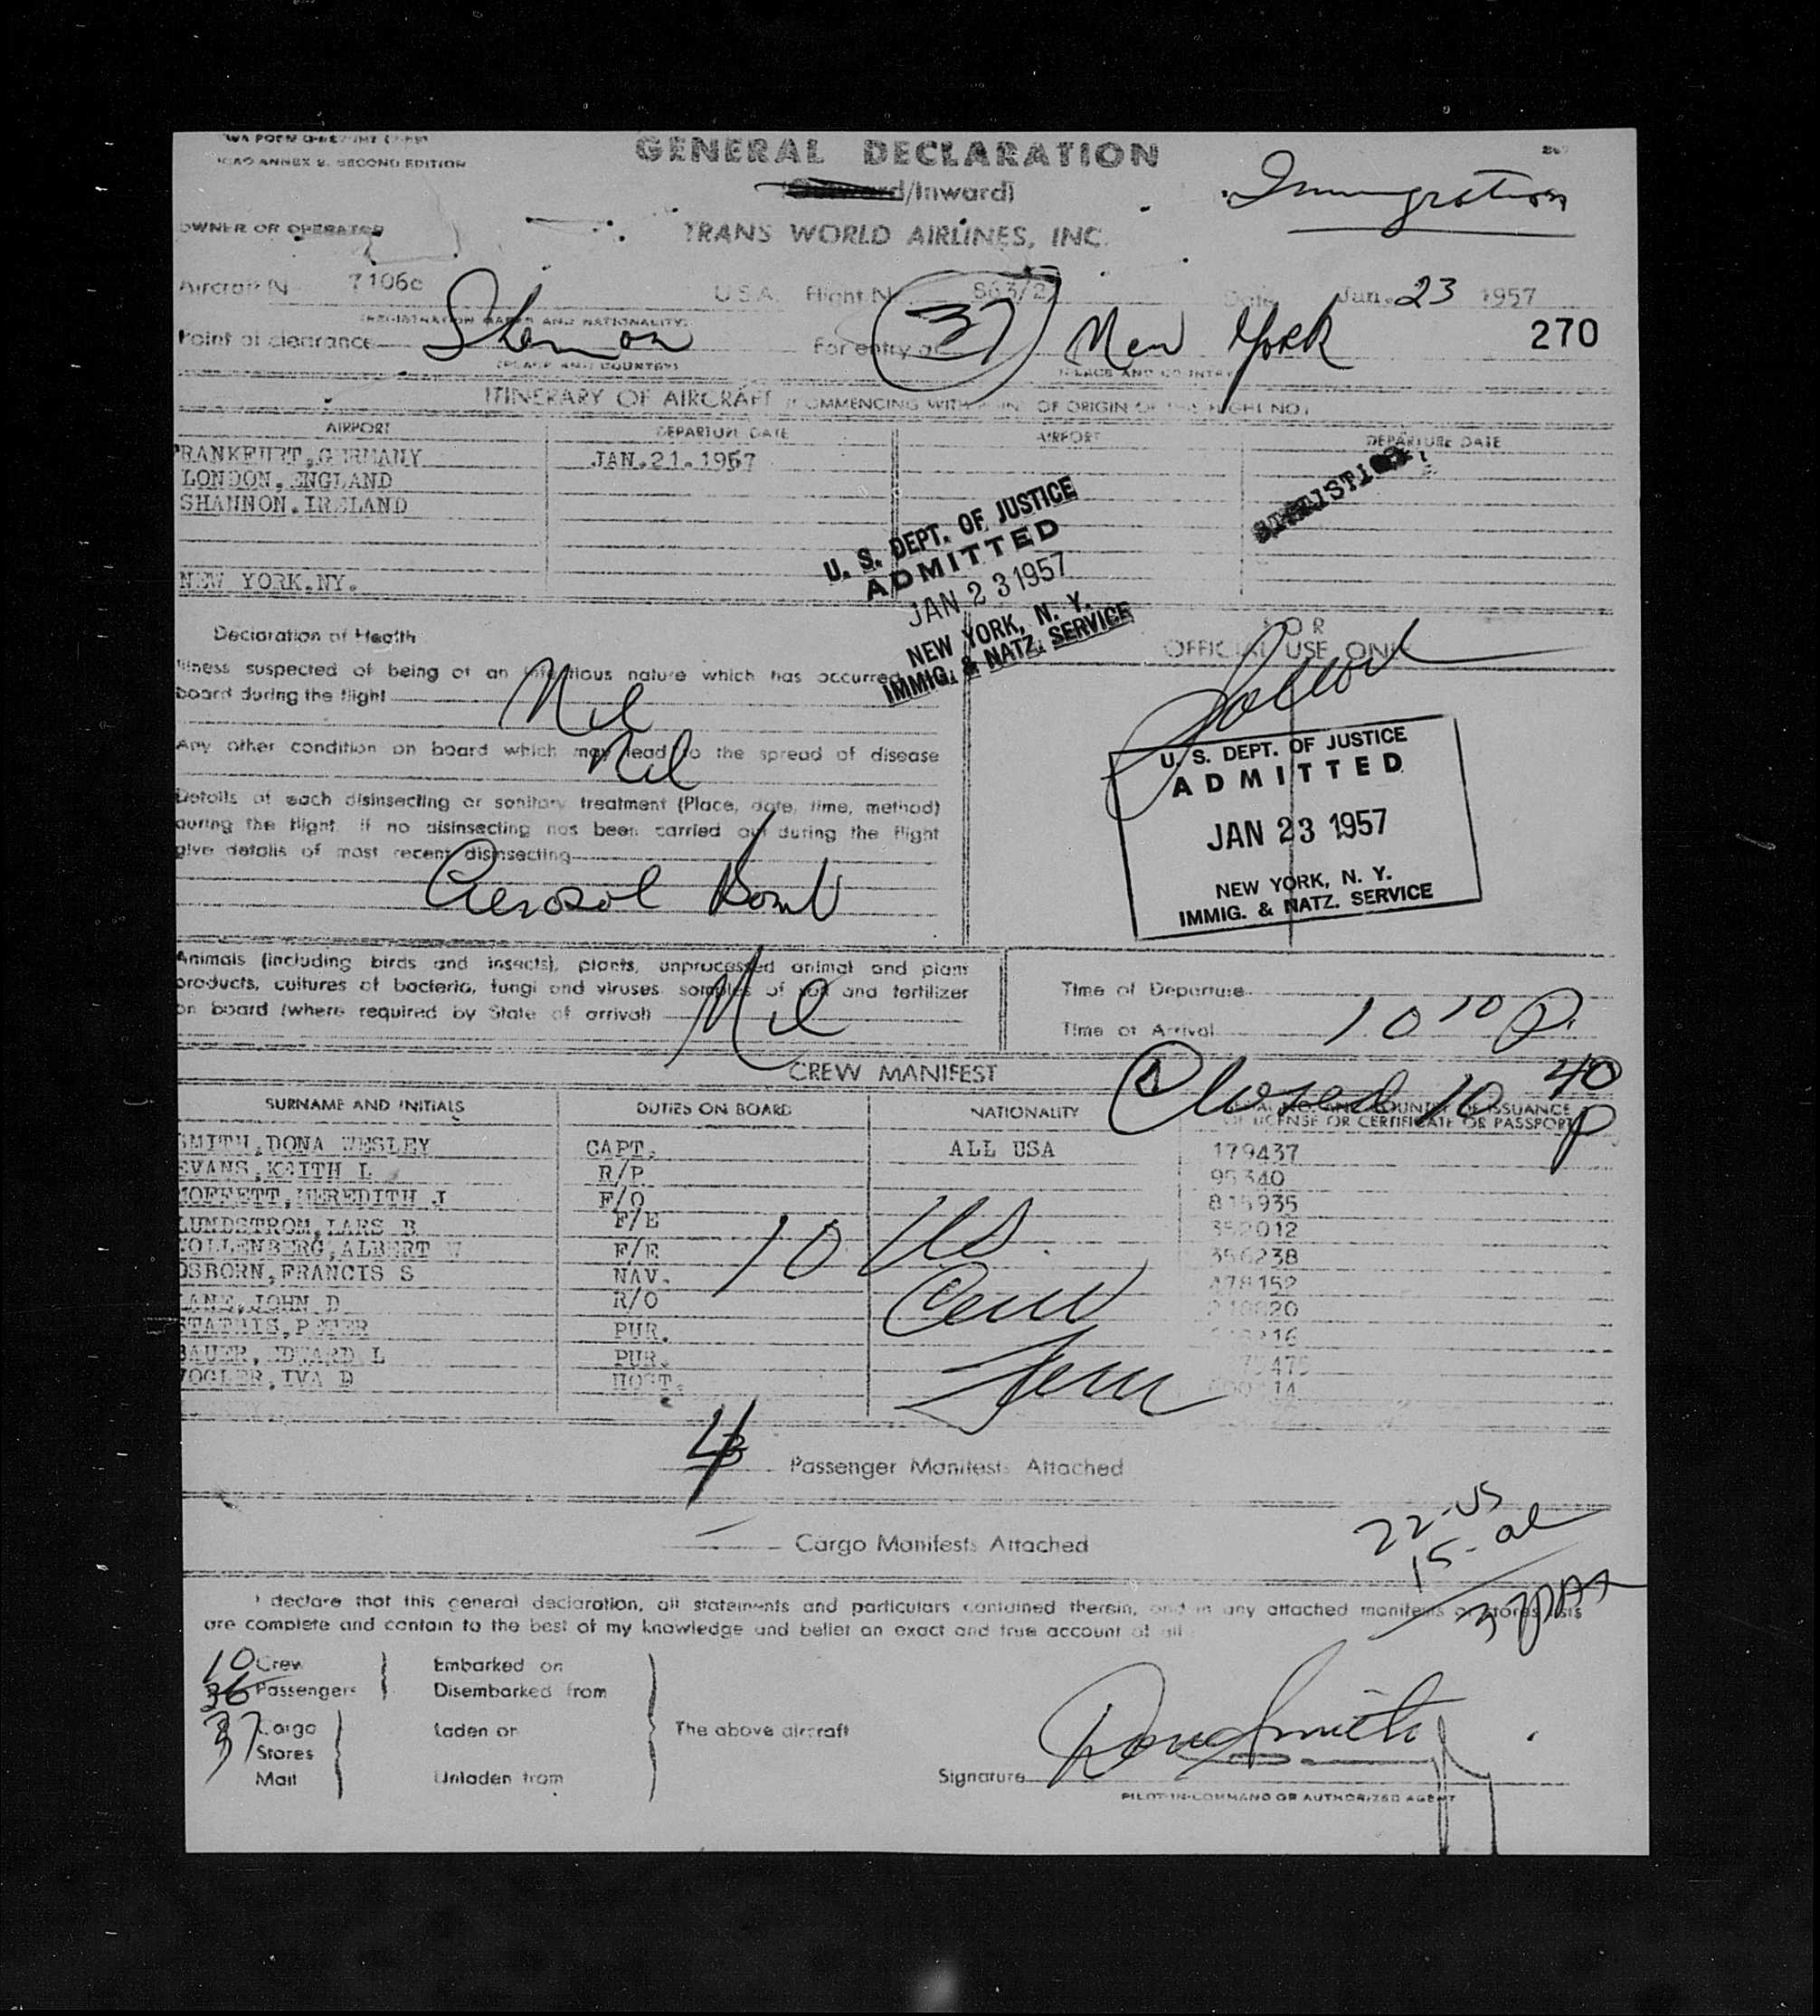 ICAO ANNEX 9. SECOND EDITION
GENERAL DECLARATION
(Outward/Inward)
Immigration
OWNER OR OPERATOR
TRANS WORLD AIRLINES, INC.
Aircraft N 7106c U.S.A. Flight N 863/2 Date Jan. 23 1957
(REGISTRATION MARKS AND NATIONALITY)
37
270
Point of clearance Shannon For entry at New York
(PLACE AND COUNTRY) (PLACE AND COUNTRY)
ITINERARY OF AIRCRAFT (COMMENCING WITH POINT OF ORIGIN OF THIS FLIGHT NO)
AIRPORT DEPARTURE DATE AIRPORT DEPARTURE DATE
RANKFURT,GERMANY JAN.21.1957
LONDON,ENGLAND
SHANNON.IRELAND
NEW YORK.NY.
STATISTICS
U. S. DEPT. OF JUSTICE
ADMITTED
JAN 23 1957
NEW YORK, N. Y.
IMMIG. & NATZ. SERVICE
Declaration of Health
Illness suspected of being of an infectious nature which has occurred
board during the flight Nil
Any other condition on board which may lead to the spread of disease
Nil
Details of each disinsecting or sanitary treatment (Place, date, time, method)
during the flight. If no disinsecting has been carried out during the flight
give details of most recent disinsecting
Aerosol Bomb
FOR
OFFICIAL USE ONLY
U. S. DEPT. OF JUSTICE
ADMITTED
JAN 23 1957
NEW YORK, N. Y.
IMMIG. & NATZ. SERVICE
Animals (including birds and insects), plants, unprocessed animal and plant
products, cultures of bacteria, fungi and viruses samples of soil and fertilizer
on board (where required by State of arrival) Nil
Time of Departure
Time of Arrival 10 10 P.
Closed 10 40 P
CREW MANIFEST
SURNAME AND INITIALS DUTIES ON BOARD NATIONALITY SERIAL NO. AND COUNTRY OF ISSUANCE
OF LICENSE OR CERTIFICATE OR PASSPORT
SMITH,DONA WESLEY CAPT. ALL USA 179437
EVANS,KAITH L R/P 95340
MOFFETT,MEREDITH J F/O 815935
LUNDSTROM,LARS B F/E 352012
VOLLENBERG,ALBERT W F/E 356238
OSBORN,FRANCIS S NAV. 478152
LANE,JOHN D R/O
STATHIS,PETER PUR.
BAUER,EDWARD L PUR.
VOGLER,IVA D HOST.
10 US.
Crew
4 Passenger Manifests Attached
Cargo Manifests Attached
22-US
15-al
37 PAX
I declare that this general declaration, all statements and particulars contained therein, and in any attached manifests or stores lists
are complete and contain to the best of my knowledge and belief an exact and true account of all
10 Crew Embarked on
36 Passengers Disembarked from
37
Cargo Laden on The above aircraft
Stores
Mail Unladen from
Signature Dona Smith
PILOT-IN-COMMAND OR AUTHORIZED AGENT